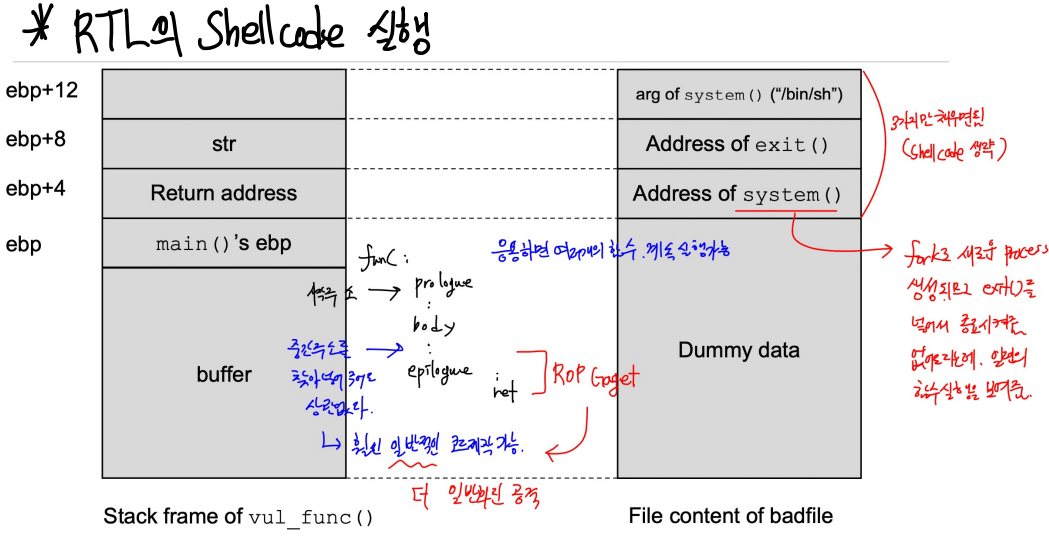 * RTL의 Shellcode 실행
ebp+12
arg of system() (“/bin/sh”)
ebp+8
str
Address of exit()
3가지만 채우면됨
(Shellcode 생략)
ebp+4
Return address
Address of system()
ebp
main()'s ebp
func :
응용하면 여러개의 함수 계속 실행가능
fork로 새로운 process
생성되므로 exit()를
넣어서 종료시켜줌
없어도 되는데, 일련의
함수실행을 보여줌.
시작주소
prologue
:
body
:
epilogue
중간주소를
찾아 넣어 주어도
상관없다.
ret
ROP Gaget
buffer
Dummy data
↳ 훨씬 일반적인 코드제작 가능.
더 일반화된 공격
Stack frame of vul_func()
File content of badfile